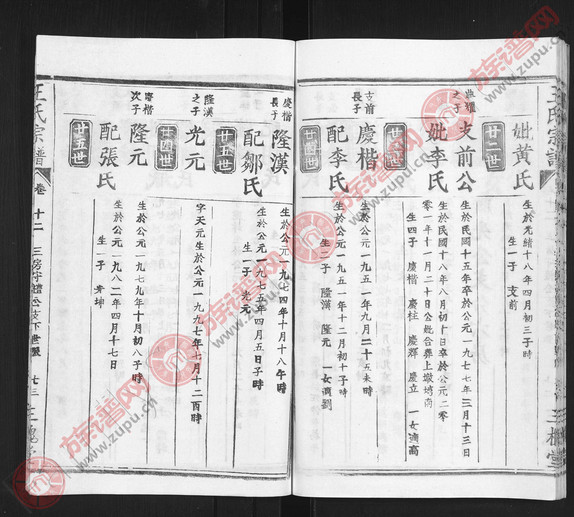 王氏宗譜
妣黄氏
生於光緒十八年四月初三子時
生一子 支前
廿二世
典禮之子
支前公
生於民國十五年卒於公元一九七七年三月十三日
妣李氏
生於民國十八年八月初十日卒於公元二零
零一年十一月二十日公妣合葬上墩塝南
生四子 慶楷 慶柱 慶輝 慶立 一女適高
廿三世
支前長子
慶楷
生於公元一九五一年九月二十五未時
配李氏
生於公元一九五一年十二月初十子時
生二子 隆漢 隆元 一女適劉
廿四世
慶楷長子
隆漢
生於公元一九七四年十月十八午時
配鄒氏
生於公元一九七五年四月五日子時
生一子 光元
廿五世
隆漢之子
光元
字天元生於公元一九九七年七月十二酉時
廿四世
慶楷次子
隆元
生於公元一九七九年十月初八子時
配張氏
生於公元一九八二年四月十七日
生一子
廿五世
王氏宗譜
卷十二
七三
三槐堂
族谱网
www.zupu.cn